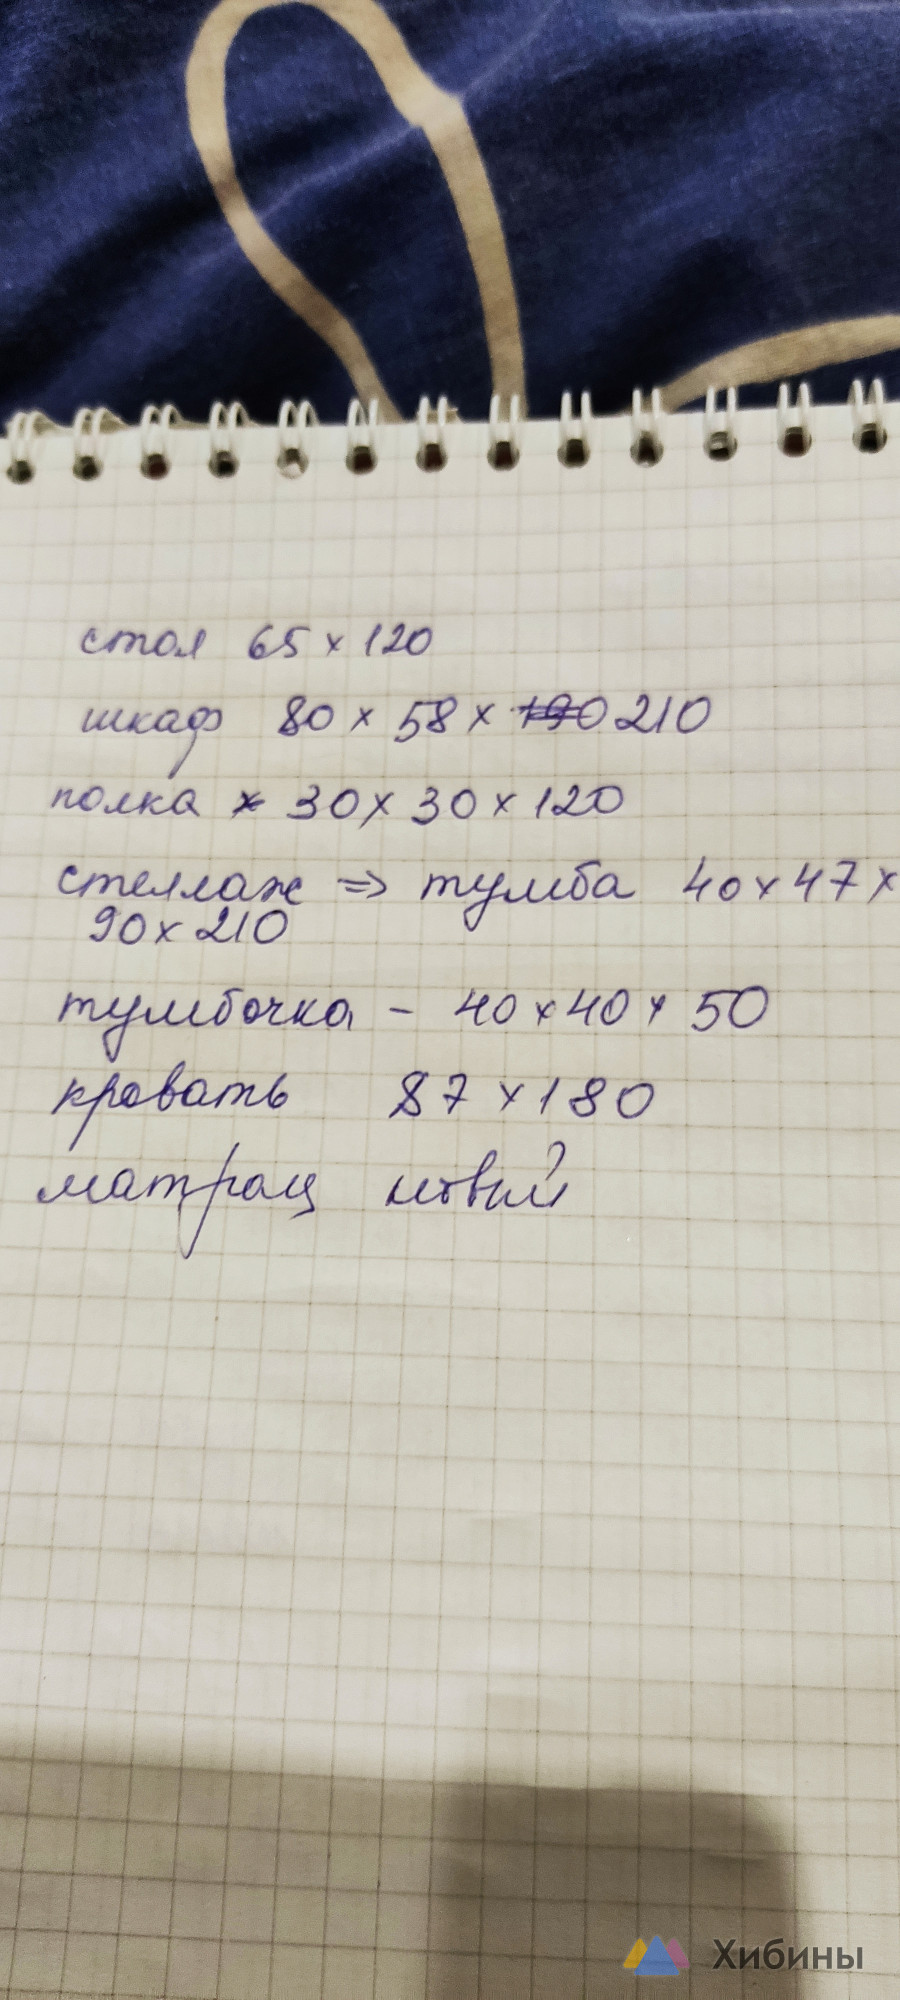 стол 65 x 120
шкаф 80 x 58 x 190 210
полка x 30 x 30 x 120
стеллаж => тумба 40 x 47 x
90 x 210
тумбочка - 40 x 40 x 50
кровать 87 x 180
матрац новый
Хибины